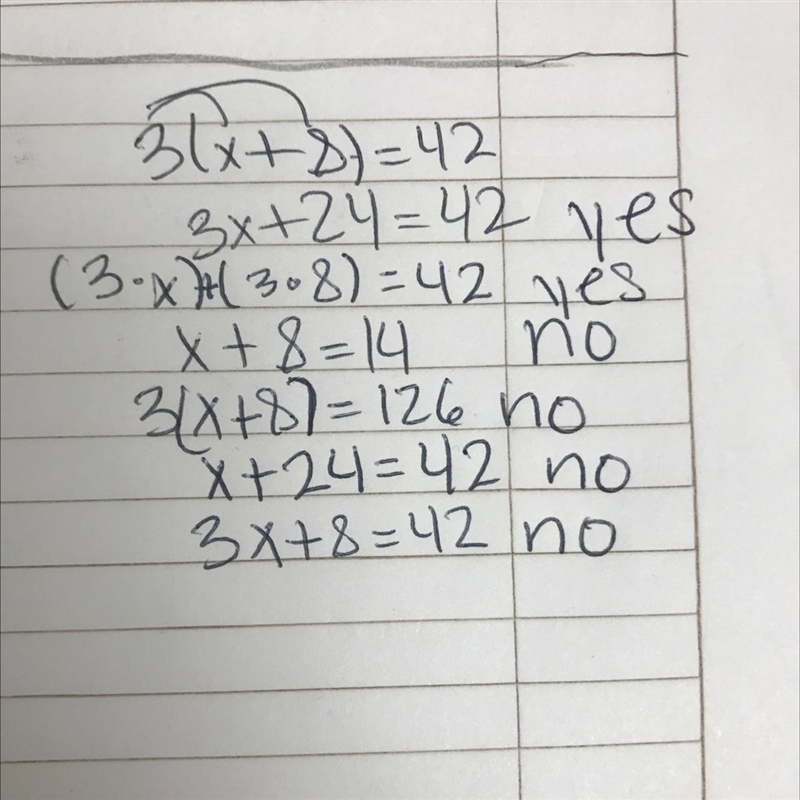 3(x+8)=42
3x+24=42 yes
(3·x)+(3·8)=42 yes
x+8=14 no
3(x+8)=126 no
x+24=42 no
3x+8=42 no